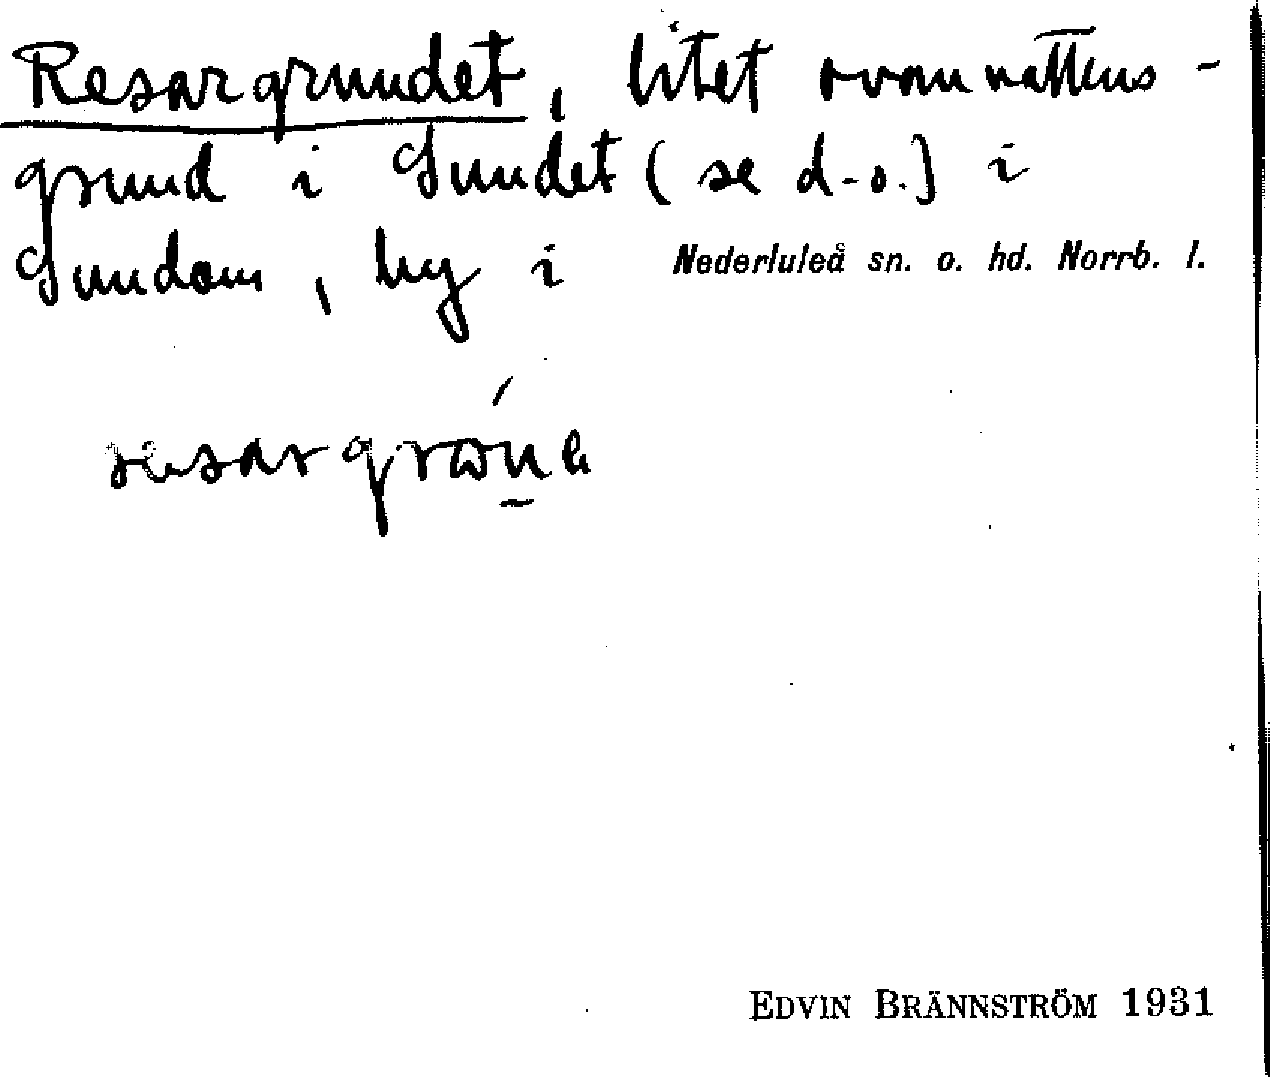 Resargrundet, litet ovanvattens-
grund i Sundet (se d.o.) i
Sundom, by i Nederluleå sn. o. hd. Norrb. l.
EDVIN BRÄNNSTRÖM 1931